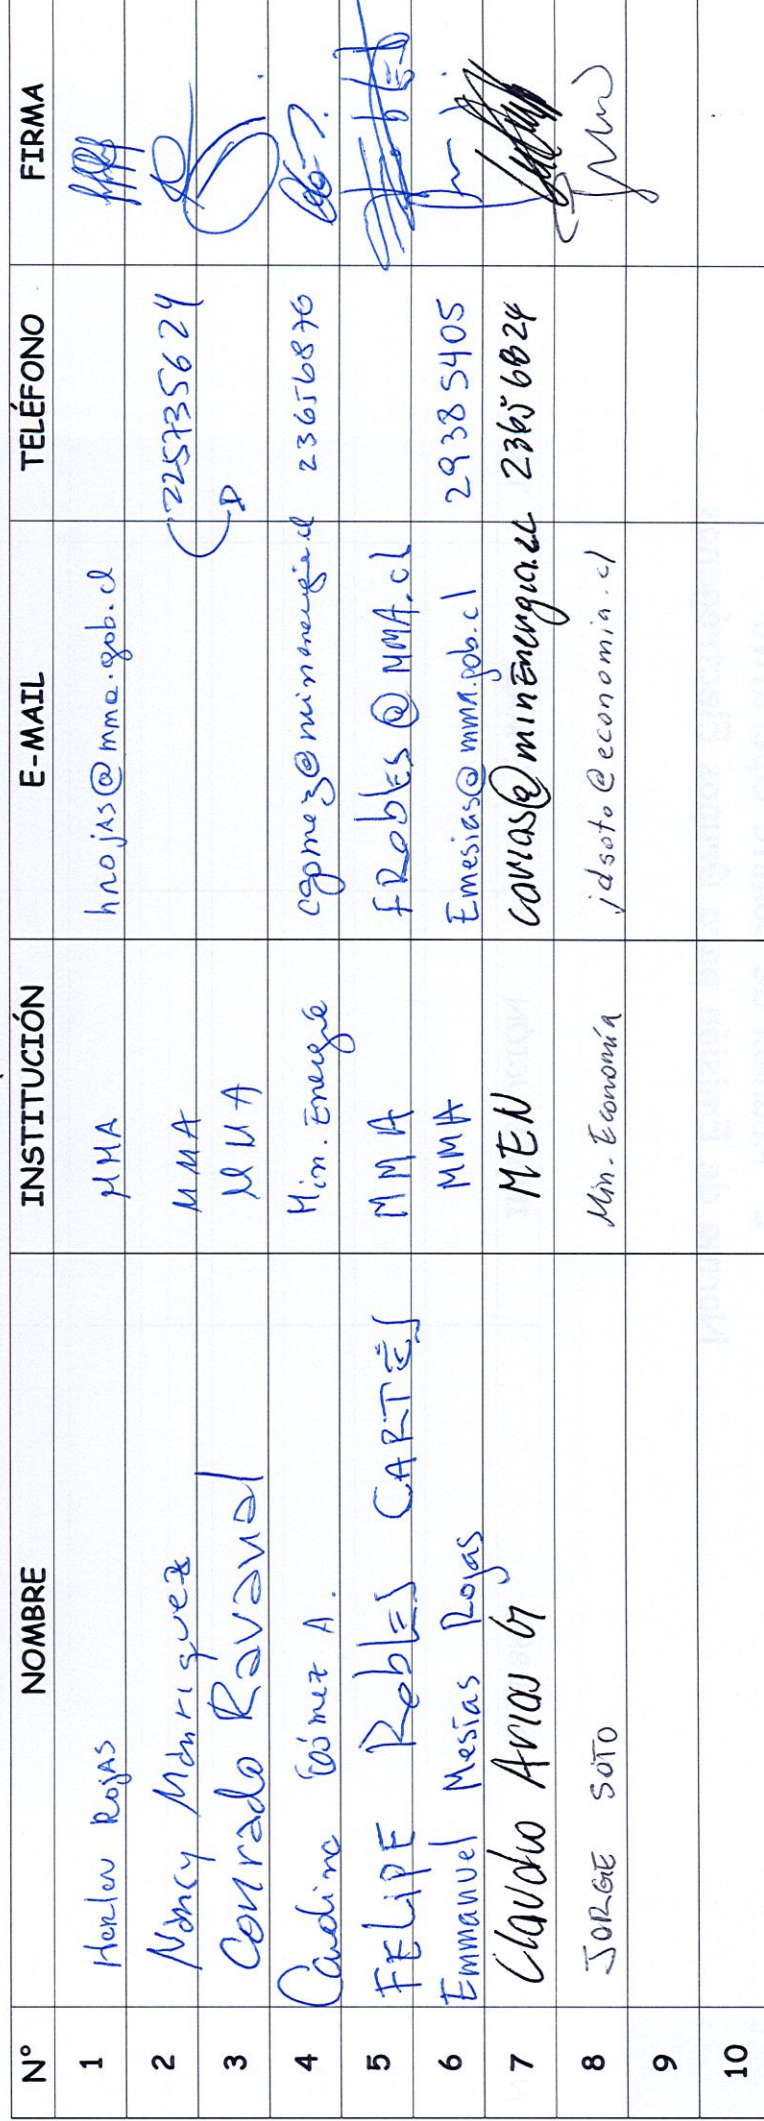 N° NOMBRE INSTITUCIÓN E-MAIL TELÉFONO FIRMA
1 Rojas MMA hrojas@mma.gob.cl
2 Nancy Manriquez MMA 225735624
3 Conrado Ravanal MMA
4 Carolina Gómez A. Min. Energía cgomez@minenergia.cl 23656876
5 FELIPE Robles CARTES MMA FRobles@MMA.cl
6 Emmanuel Mesías Rojas MMA Emesias@mma.gob.cl 29385405
7 Claudio Arias G MEN carias@minEnergia.cl 23656824
8 JORGE SOTO Min. Economía jdsoto@economia.cl
9
10